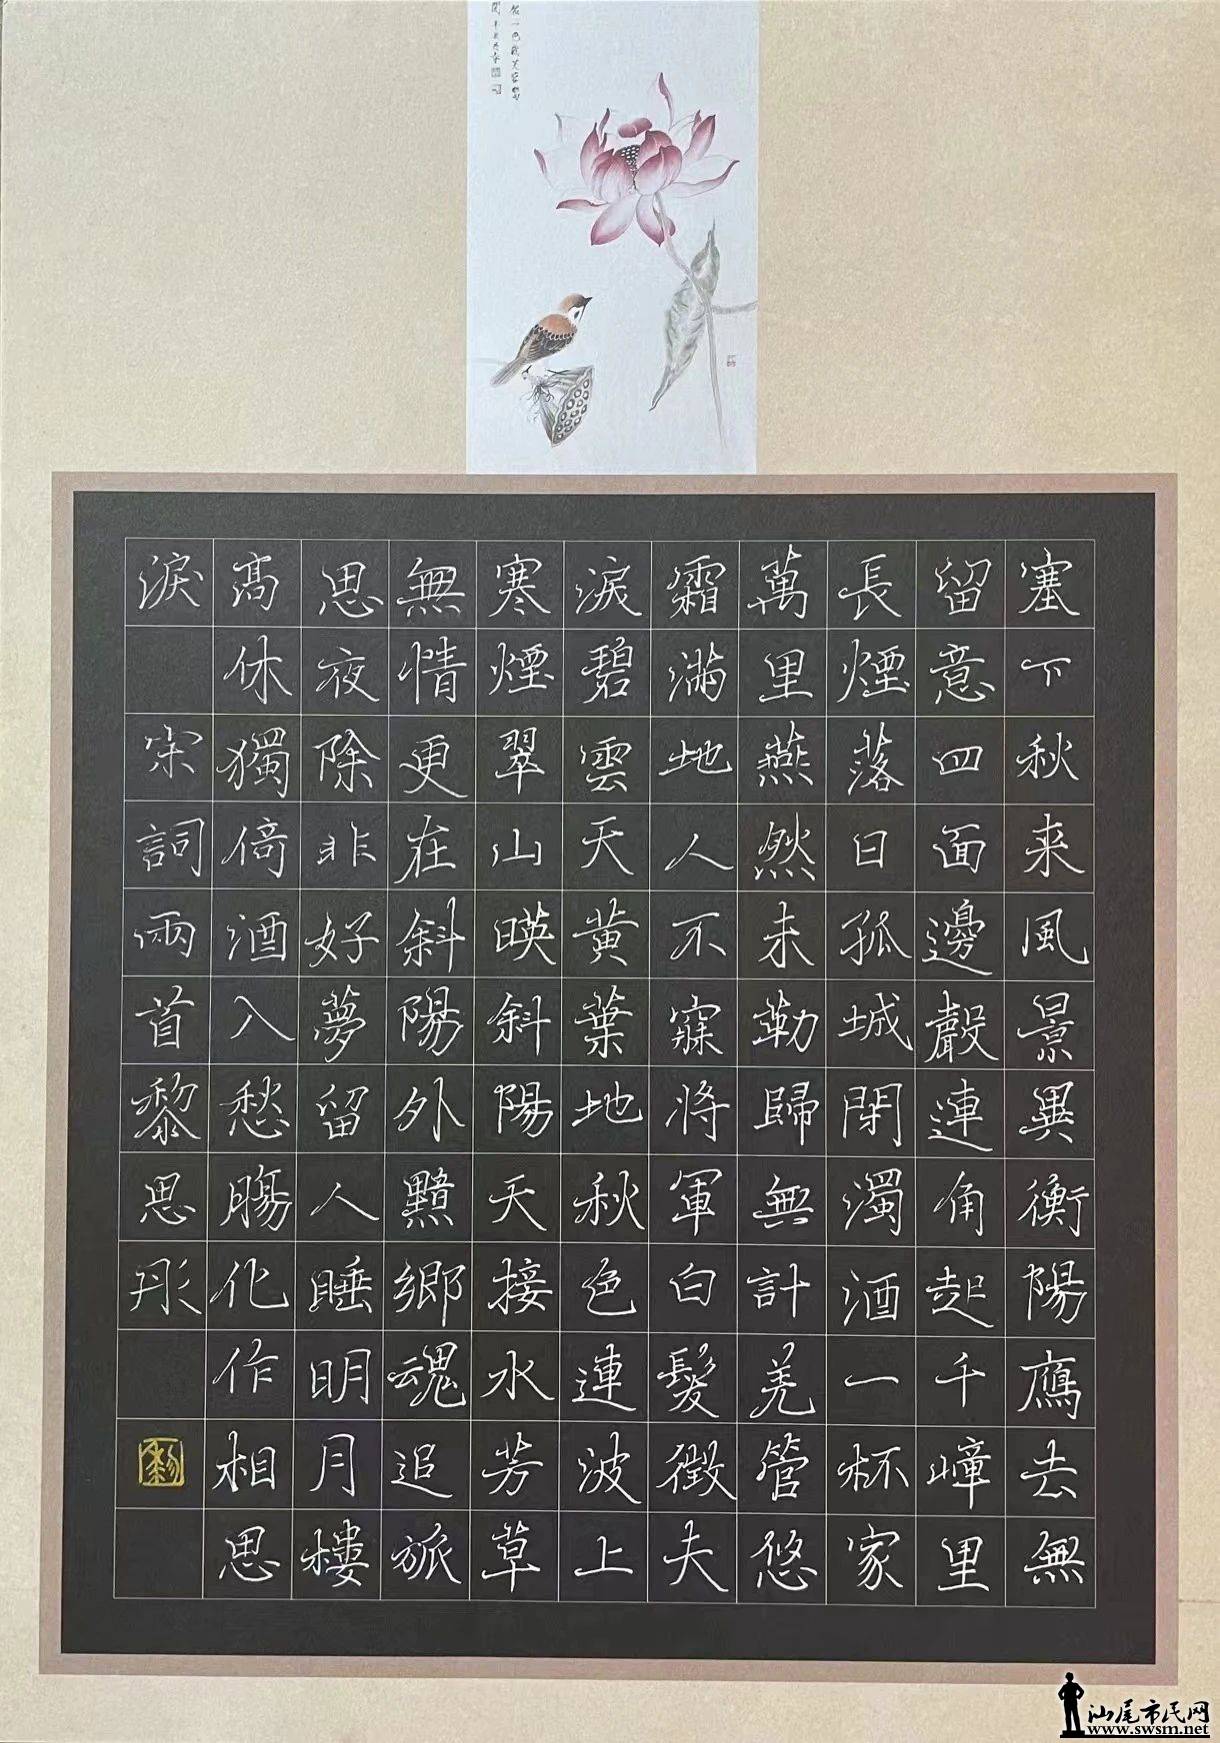 塞下秋来風景異衡陽鴈去無
留意四面邊聲連角起千嶂里
長煙落日孤城閉濁酒一杯家
萬里燕然未勒歸無計羌管悠
霜滿地人不寐將軍白髮徵夫
淚碧雲天黃葉地秋色連波上
寒煙翠山暎斜陽天接水芳草
無情更在斜陽外黯鄉魂追旅
思夜除非好夢留人睡明月樓
高休獨倚酒入愁腸化作相思
淚 宋詞兩首黎思彤
汕尾市民网
www.swsm.net